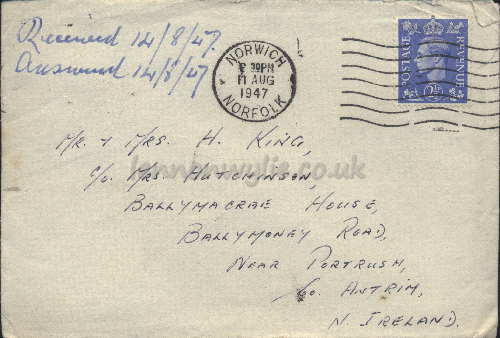 Received 14/8/47.
Answered 14/8/47
NORWICH
30PM
11 AUG
1947
NORFOLK
POSTAGE
REVENUE
2½
MR. & MRS. H. KING,
c/o. MRS. HUTCHINSON,
lennonwylie.co.uk
BALLYMACRAE HOUSE,
BALLYMONEY ROAD,
NEAR PORTRUSH,
Co. ANTRIM,
N. IRELAND.